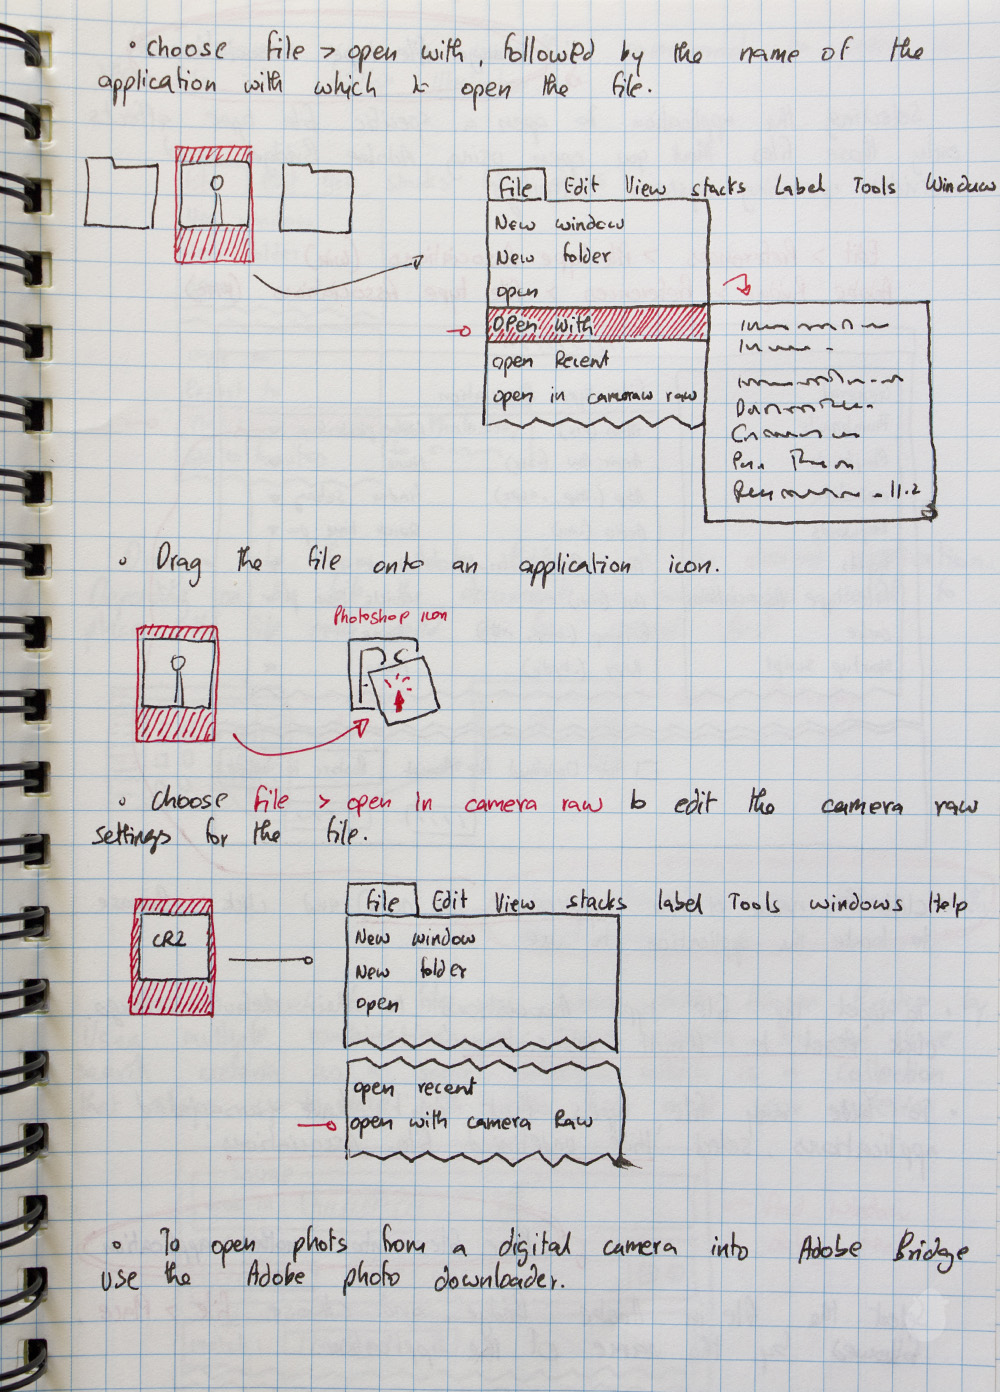 • Choose file > open with, followed by the name of the
application with which to open the file.
File Edit View stacks Label Tools Window
New window
New folder
open
Open With
open Recent
open in cameraw raw
11.2
• Drag the file onto an application icon.
Photoshop icon
PS
• Choose file > open in camera raw to edit the camera raw
settings for the file.
CR2
File Edit View stacks label Tools windows Help
New window
New folder
open
open recent
open with camera Raw
• To open phots from a digital camera into Adobe Bridge
use the Adobe photo downloader.